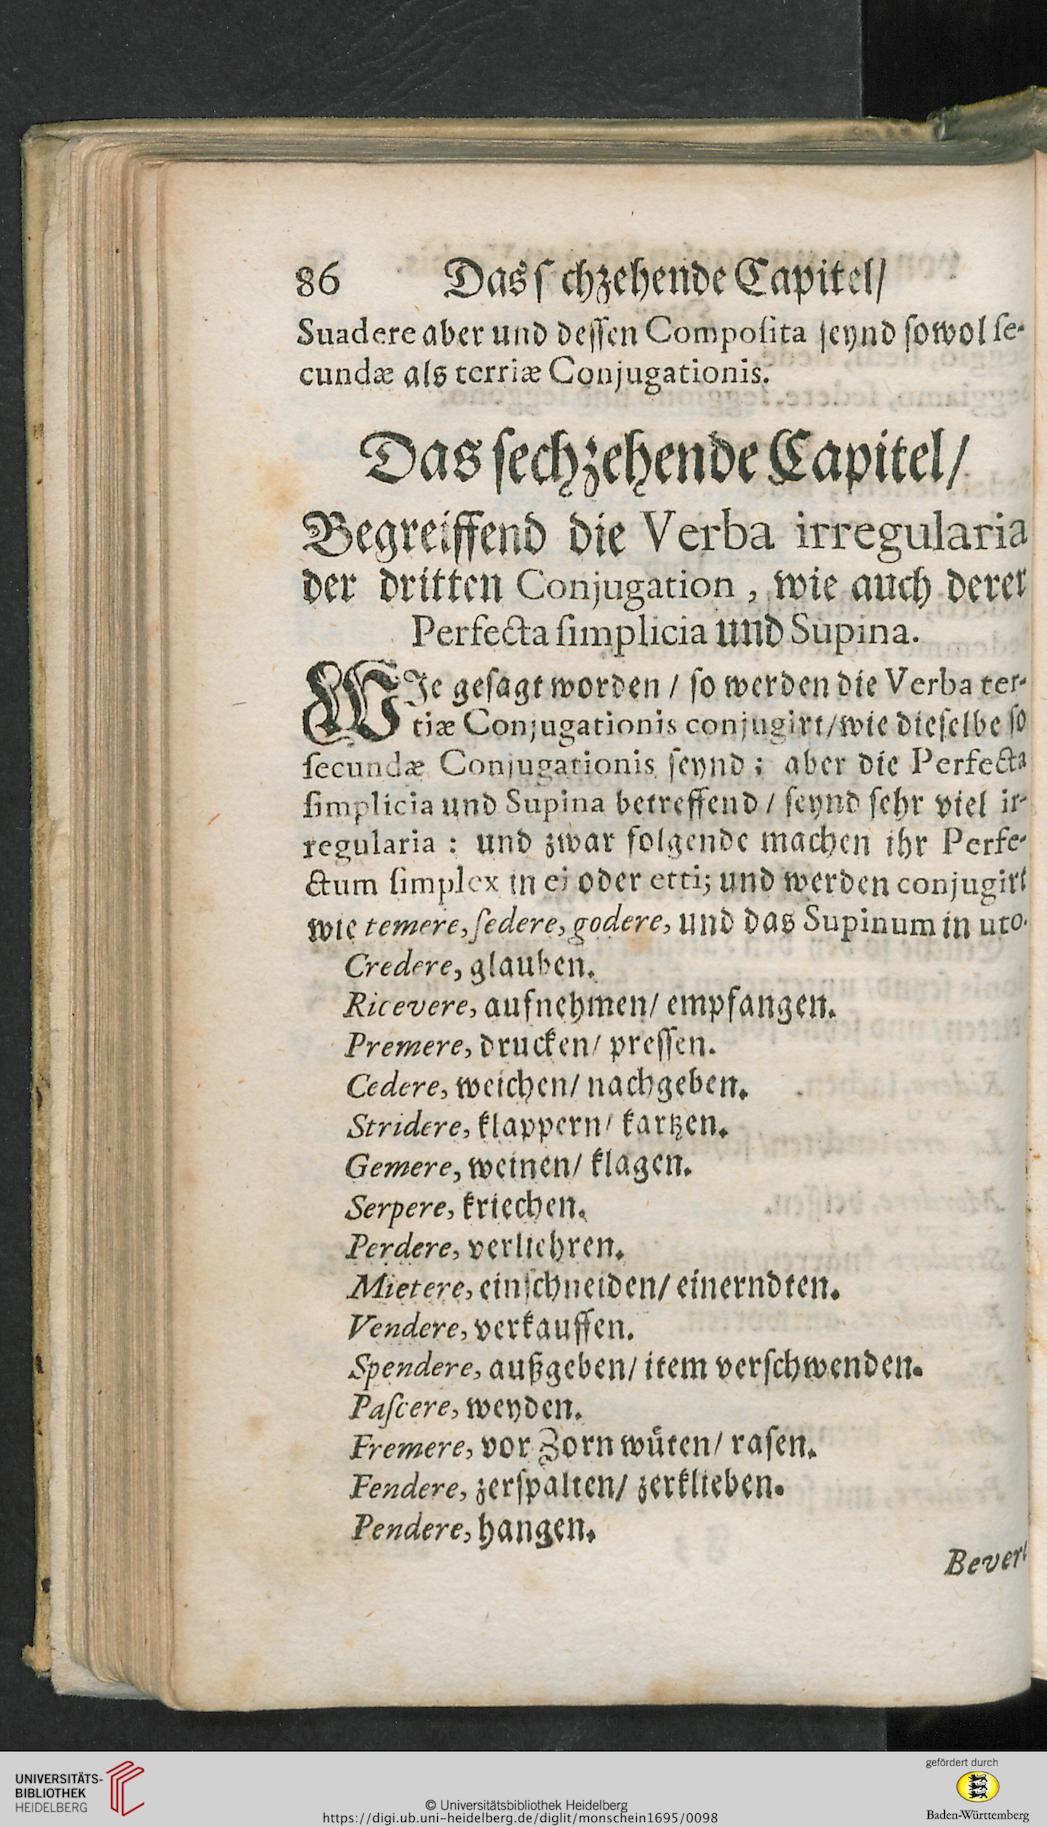 86 Das s chzehende Capitel/
Suadere aber und dessen Composita seynd sowol se-
cundæ als terriæ Conjugationis.
Das sechzehende Capitel/
Begreiffend die Verba irregularia
der dritten Conjugation, wie auch derer
Perfecta simplicia und Supina.
WIe gesagt worden / so werden die Verba ter-
tiæ Conjugationis conjugirt/wie dieselbe so
secundæ Conjugationis seynd; aber die Perfecta
simplicia und Supina betreffend / seynd sehr viel ir-
regularia : und zwar folgende machen ihr Perfe-
ctum simplex in ei oder etti; und werden conjugirt
wie temere, sedere, godere, und das Supinum in uto.
Credere, glauben.
Ricevere, aufnehmen/ empfangen.
Premere, drucken/ pressen.
Cedere, weichen/ nachgeben.
Stridere, klappern/ kartzen.
Gemere, weinen/ klagen.
Serpere, kriechen.
Perdere, verliehren.
Mietere, einschneiden/ einerndten.
Vendere, verkauffen.
Spendere, außgeben/ item verschwenden.
Pascere, weyden.
Fremere, vor Zorn wüten/ rasen.
Fendere, zerspalten/ zerklieben.
Pendere, hangen.
UNIVERSITÄTS-
BIBLIOTHEK
HEIDELBERG
© Universitätsbibliothek Heidelberg
https://digi.ub.uni-heidelberg.de/diglit/monschein1695/0098
gefördert durch
Baden-Württemberg